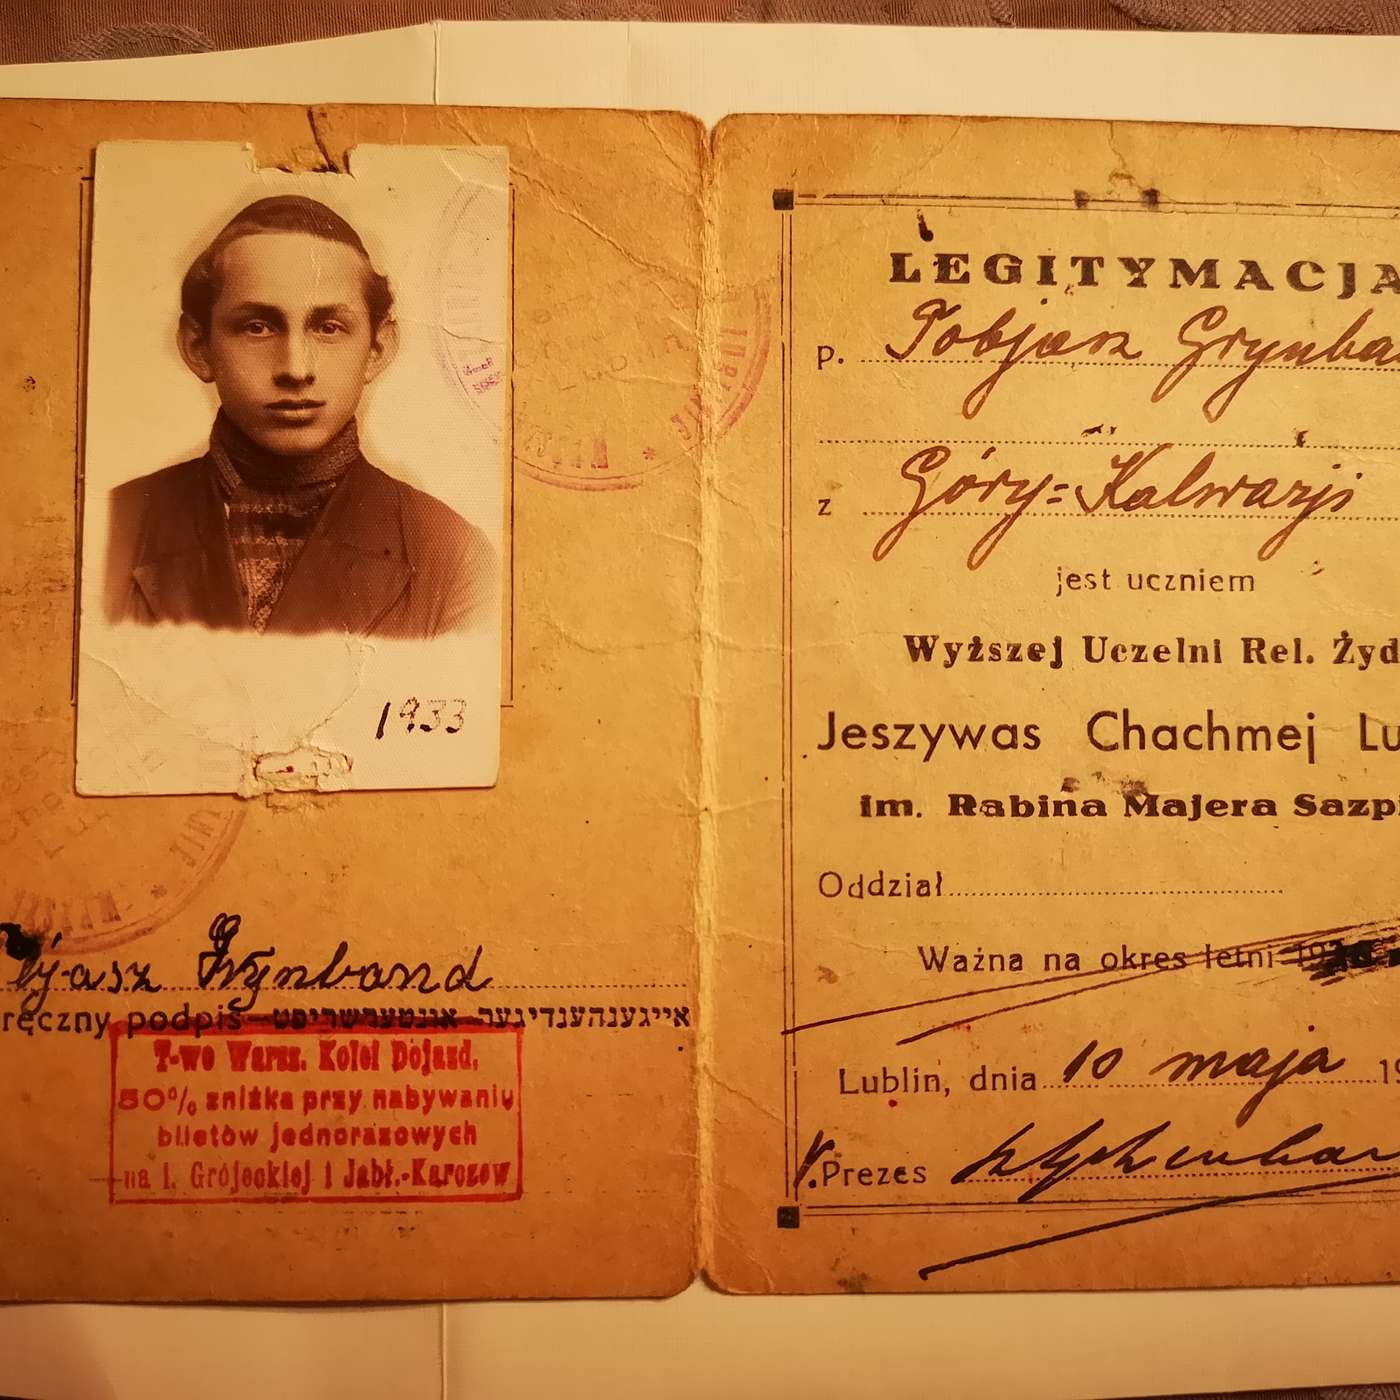 1933
jasz Grynband
ręczny podpis – אייגענהענדיגער אונטערשריפט
T-wo Warsz. Kolei Dojazd.
50% zniżka przy nabywaniu
biletów jednorazowych
na l. Grójeckiej i Jabł.-Karczew
LEGITYMACJA
p. Tobjasz Grynba
z Góry=Kalwarji
jest uczniem
Wyższej Uczelni Rel. Żyd
Jeszywas Chachmej Lu
im. Rabina Majera Sazp
Oddział
Ważna na okres letni 19
Lublin, dnia 10 maja 19
V. Prezes